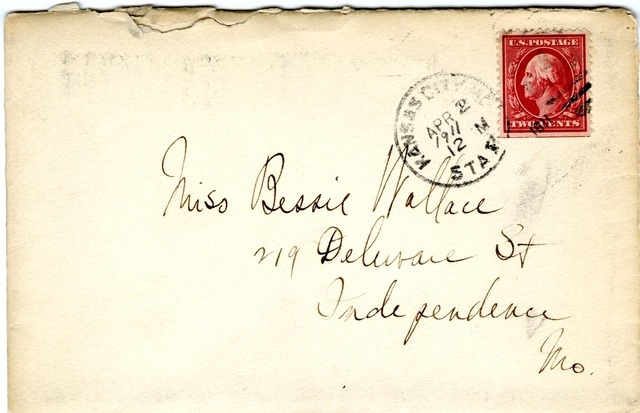 U.S. POSTAGE
TWO CENTS
KANSAS CITY
APR 2
1911
12 M
STA
Miss Bessie Wallace
219 Delaware St
Independence
Mo.